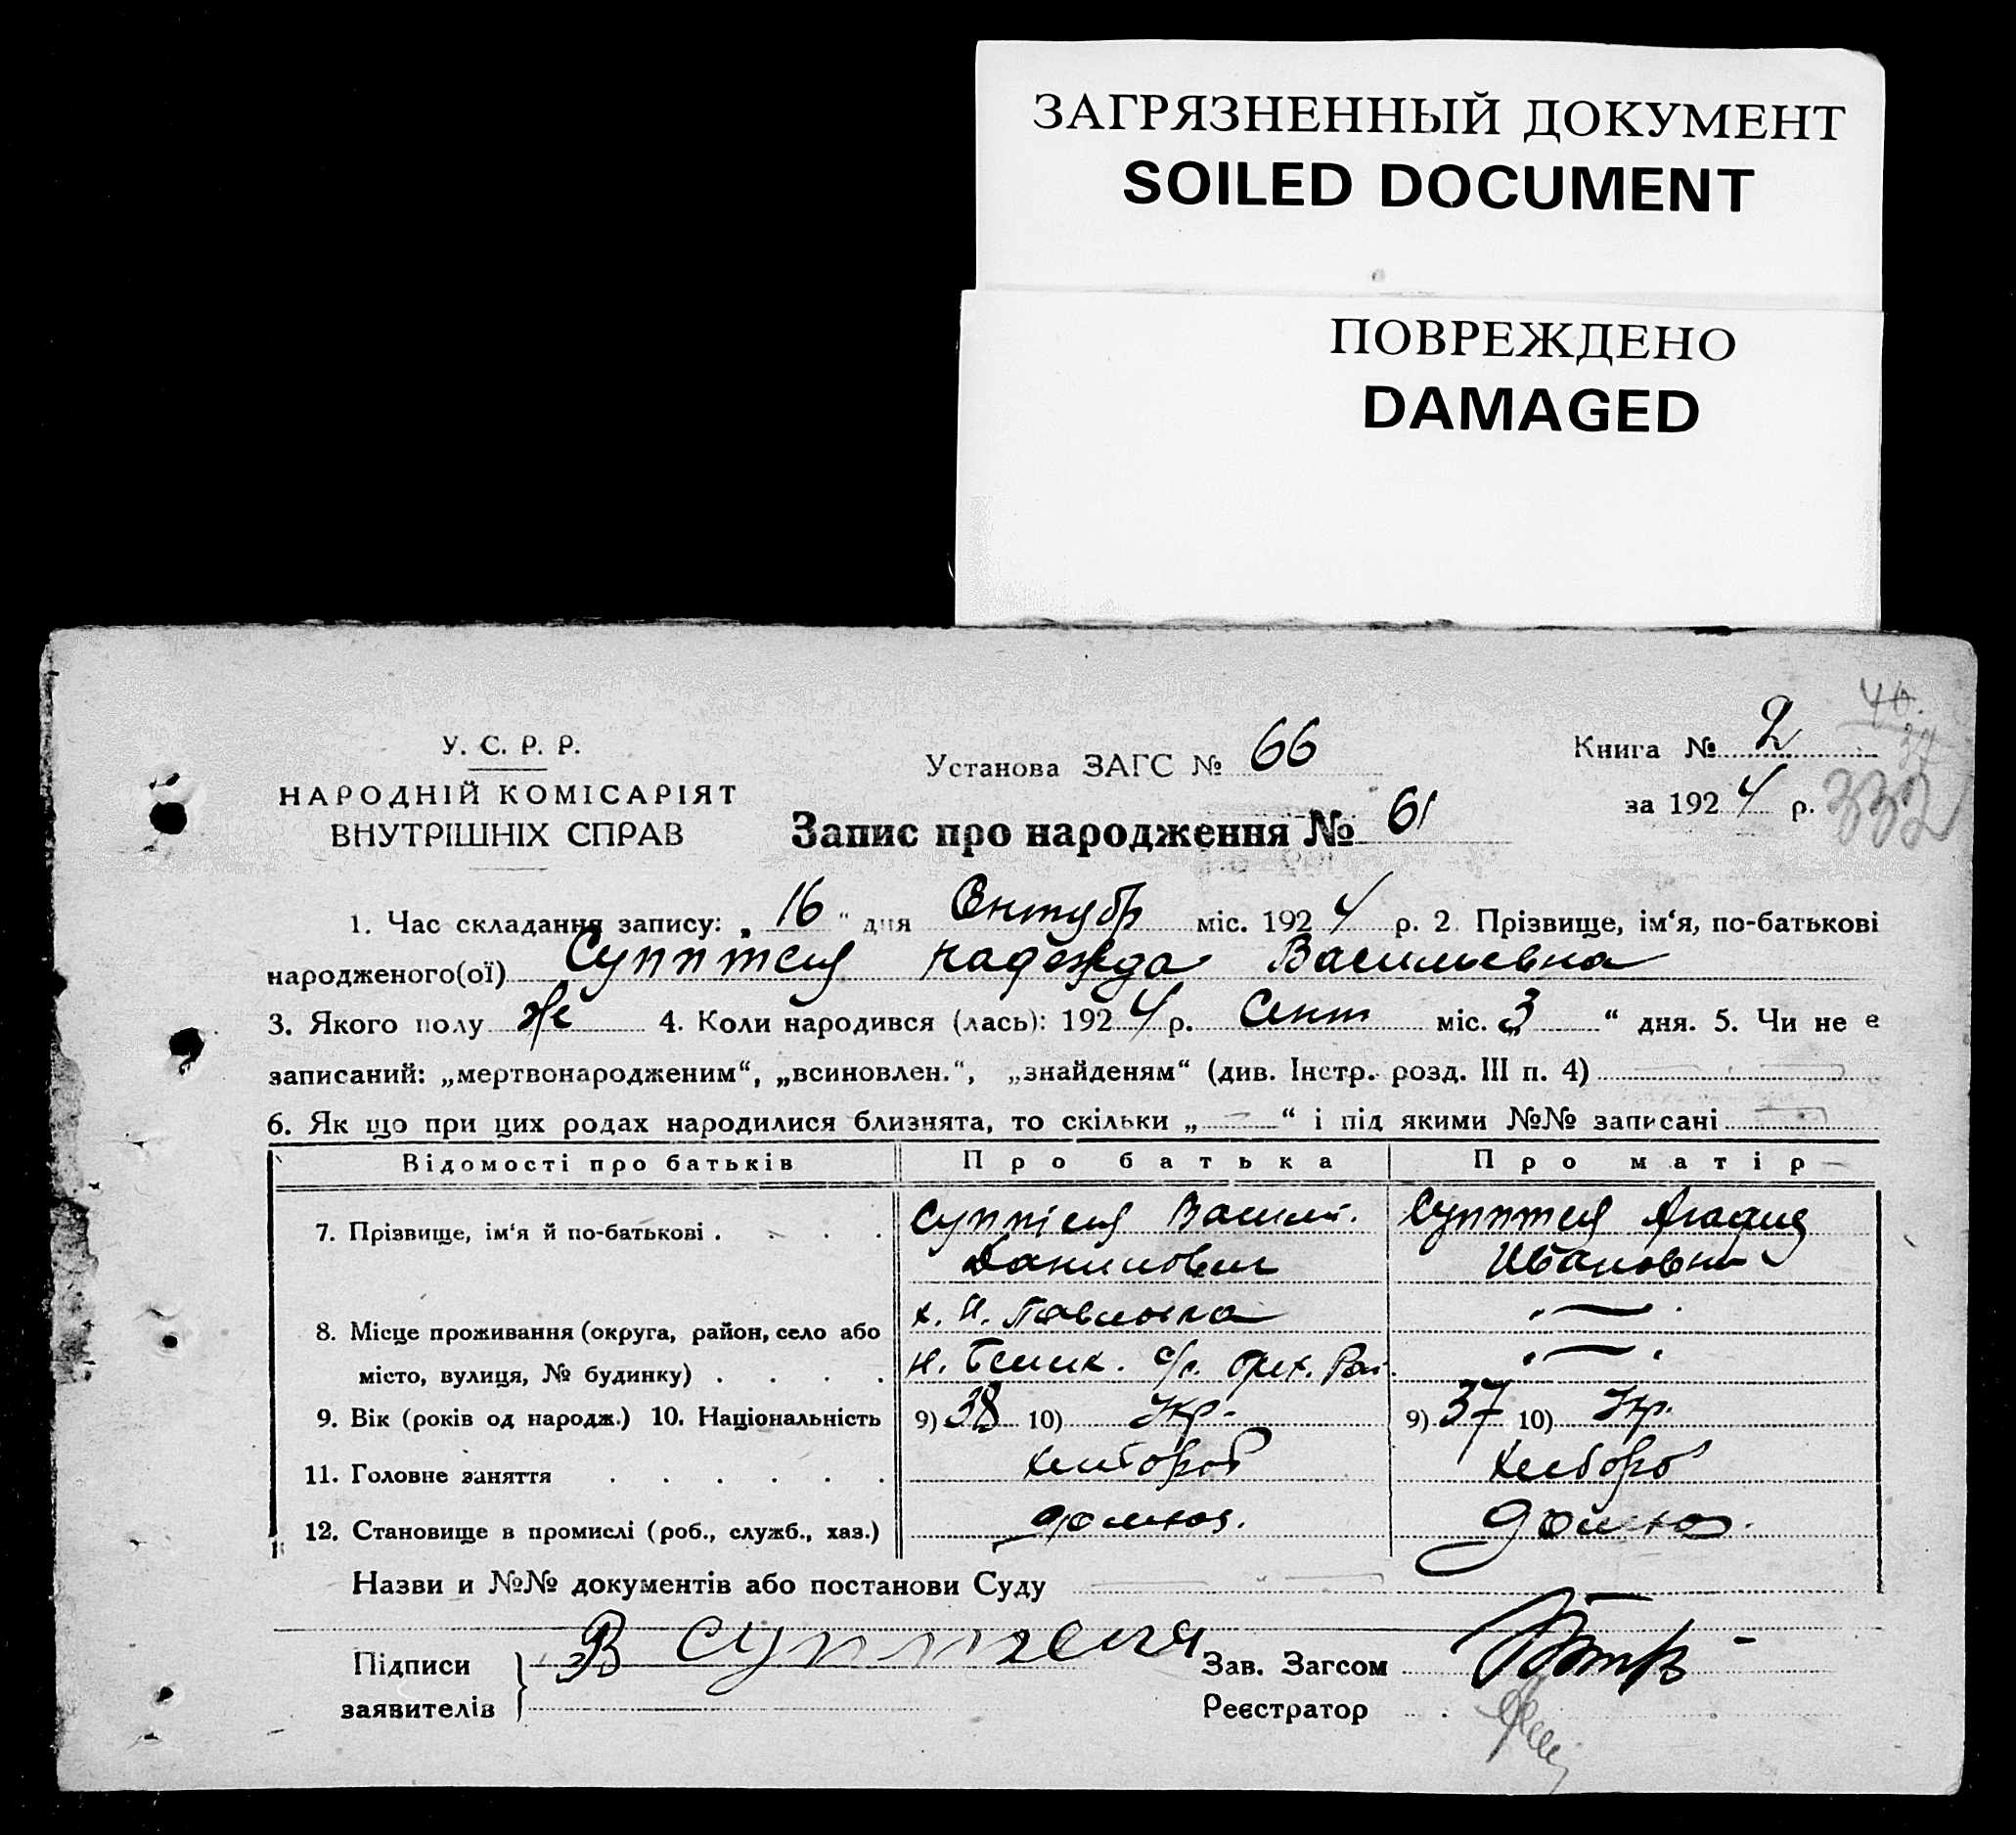 ЗАГРЯЗНЕННЫЙ ДОКУМЕНТ
SOILED DOCUMENT
ПОВРЕЖДЕНО
DAMAGED
40.
37
332
У. С. Р. Р.
НАРОДНІЙ КОМІСАРІЯТ
ВНУТРІШНІХ СПРАВ
Установа ЗАГС № 66
Книга № 2
за 1924 р.
Запис про народження № 61
1. Час складання запису: „ 16 “ дня Октубр міс. 1924 р. 2. Прізвище, ім‘я, по-батькові
народженого(ої) Надежда Васильевна
3. Якого полу Же 4. Коли народився (лась): 1924 р. Сент міс. „3 “ дня. 5. Чи не є
записаний: „мертвонародженим“, „всиновлен.“, „знайденям“ (див. Інстр. розд. III п. 4)
6. Як що при цих родах народилися близнята, то скільки „ — “ і під якими №№ записані
Відомості про батьків Про батька Про матір
7. Прізвище, ім‘я й по-батькові . Васил.
Данилович Ивановн
8. Місце проживання (округа, район, село або х. Н. Павловка
місто, вулиця, № будинку) . с/с. Орех. Рай.
9. Вік (років од народж.) 10. Національність 9) 38 10) Укр. 9) 37 10) Укр.
11. Головне заняття хлебороб хлебороб
12. Становище в промислі (роб., служб., хаз.) домхоз. домхоз.
Назви и №№ документів або постанови Суду
Підписи
заявителів
В
Зав. Загсом
Реєстратор